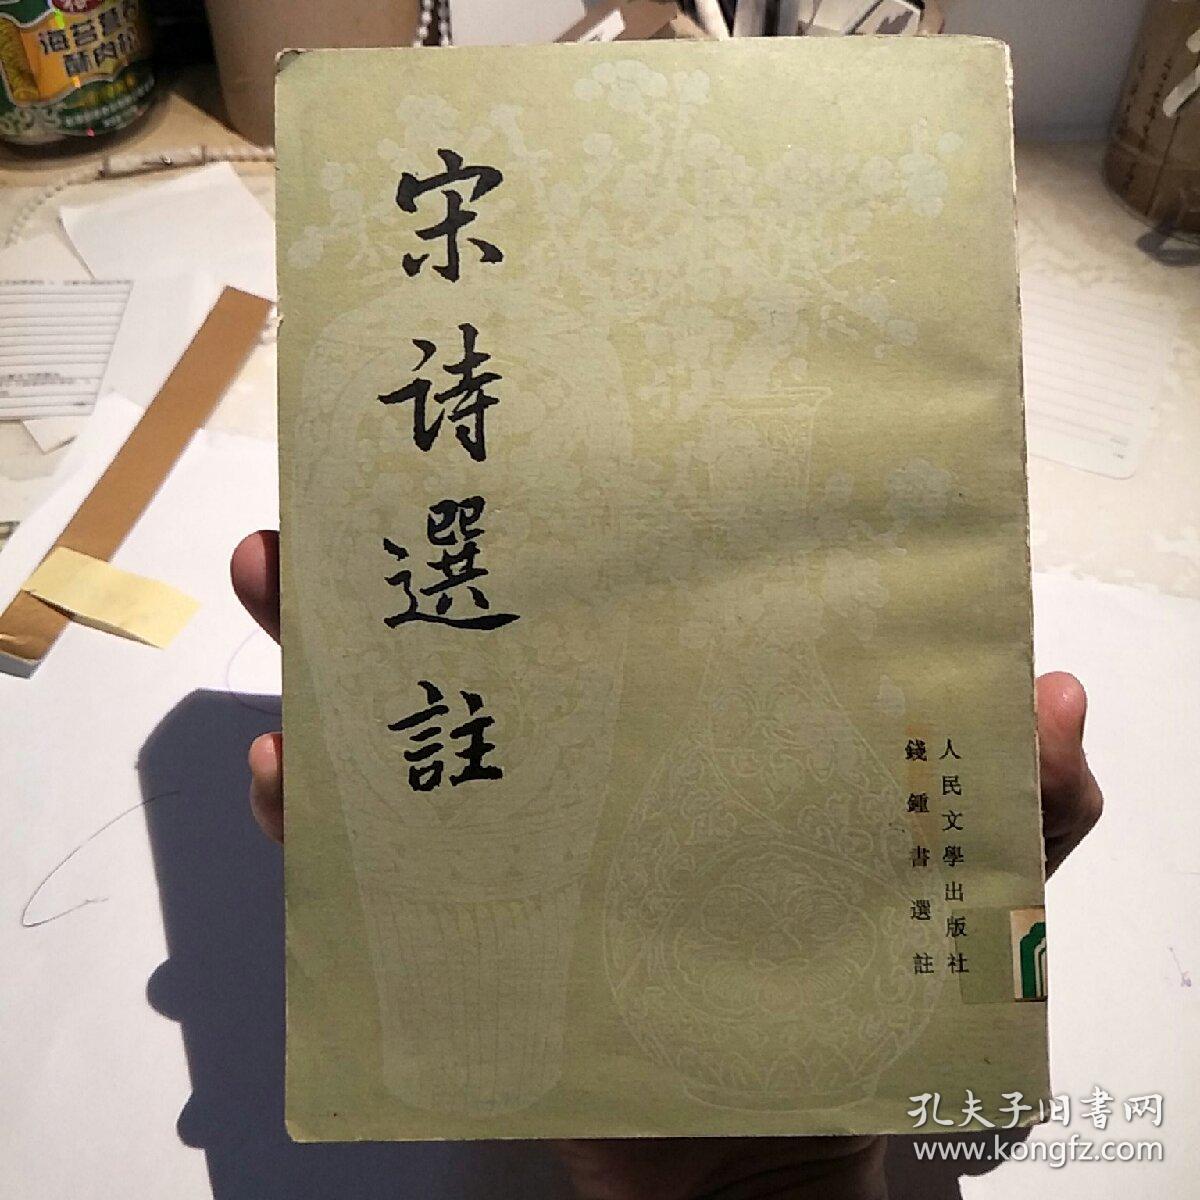 宋詩選註
人民文學出版社
錢鍾書選註
海苔
酥肉松
孔夫子旧書网
www.kongfz.com